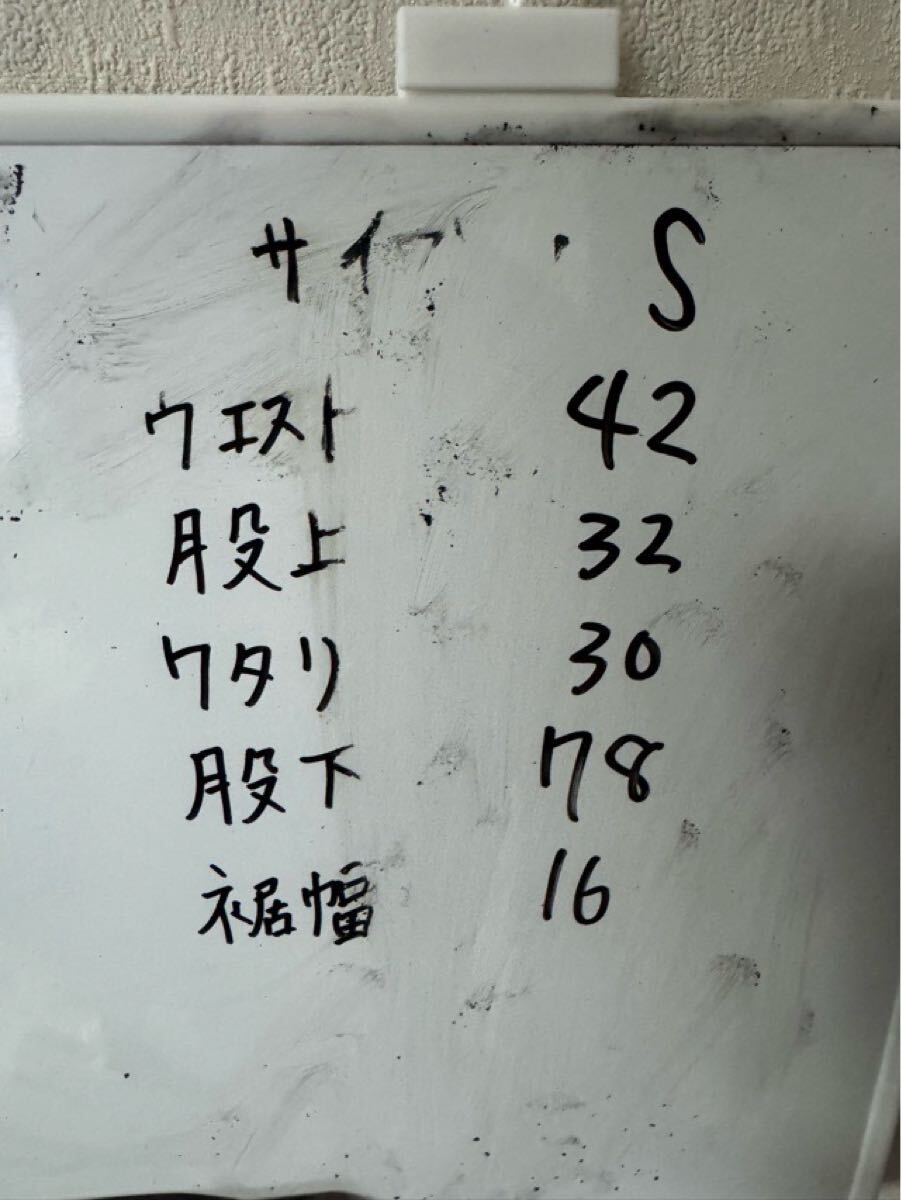 サイズ S
ウエスト 42
股上 32
ワタリ 30
股下 78
裾幅 16